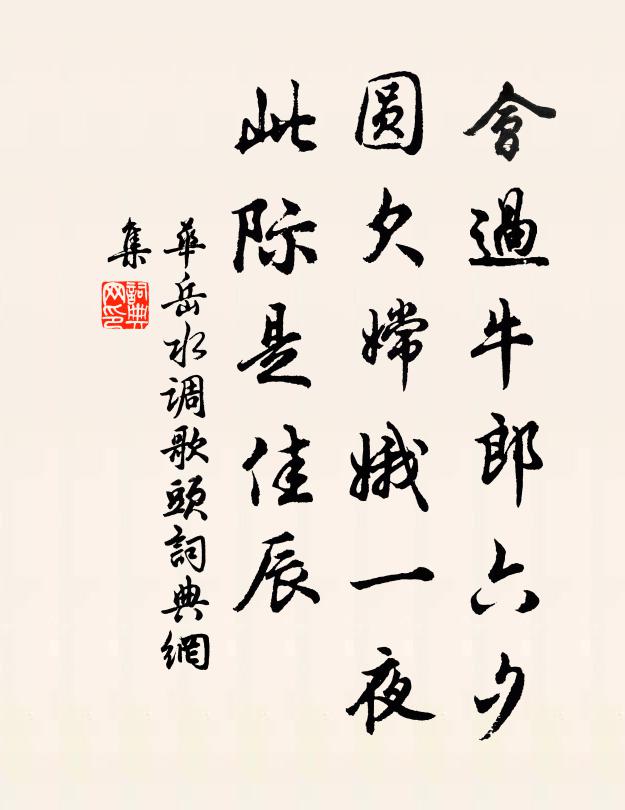 會過牛郎六夕
圆欠嫦娥一夜
此际是佳辰
華岳水调歌頭詞典網
集
詞典
网印